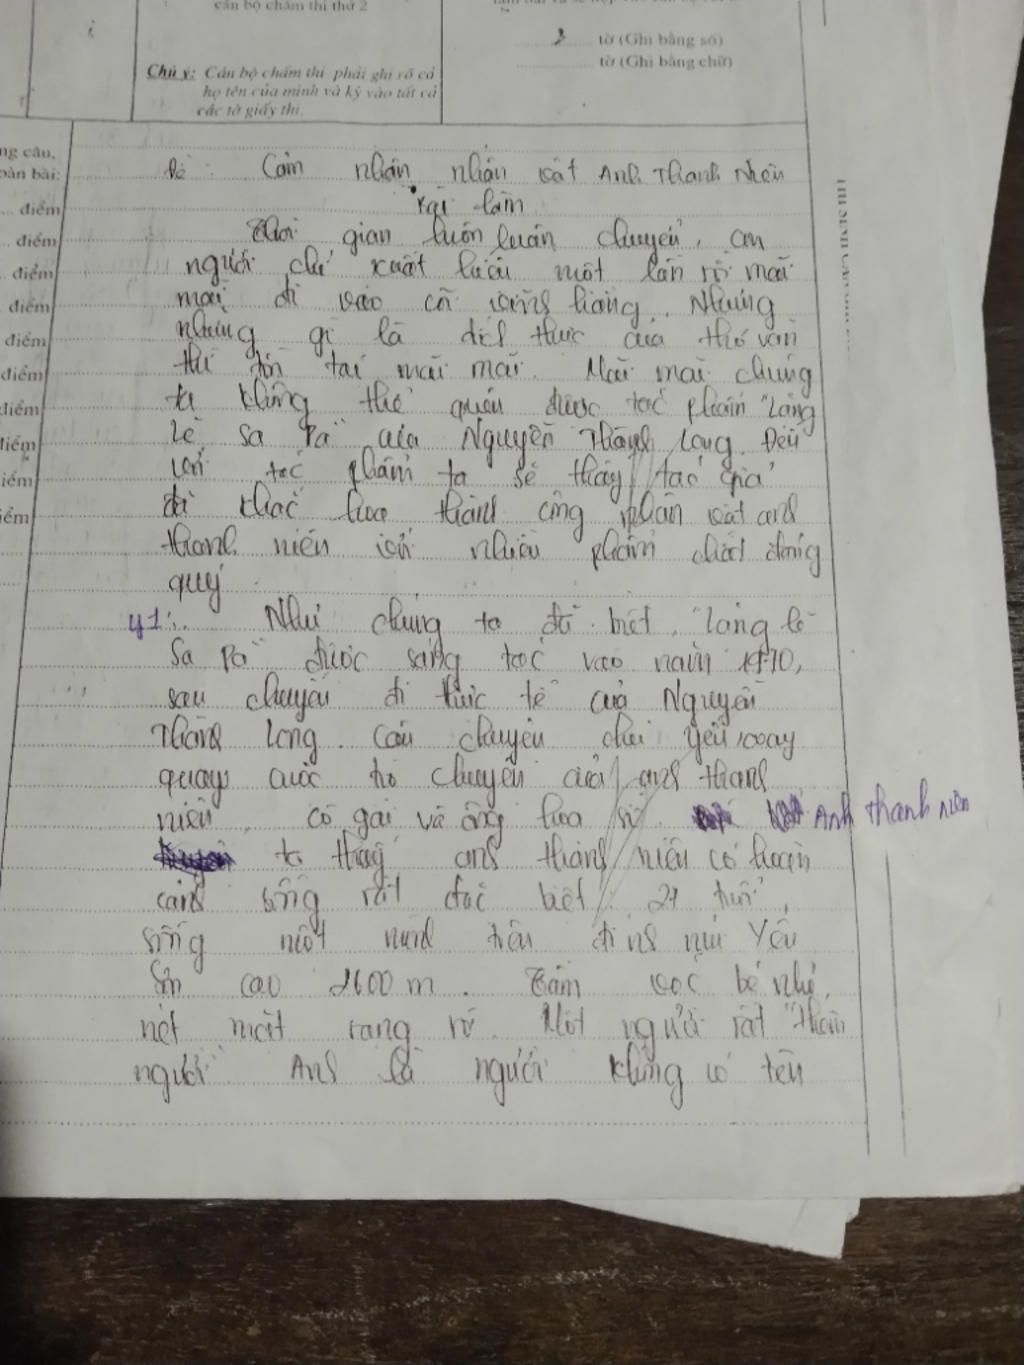 cán bộ chấm thi thứ 2
2 tờ (Ghi bằng số)
tờ (Ghi bằng chữ)
Chú ý: Cán bộ chấm thi phải ghi rõ cả
họ tên của mình và ký vào tất cả
các tờ giấy thi.
ng câu,
toàn bài:
điểm
điểm
điểm
điểm
điểm
điểm
điểm
điểm
điểm
điểm
Đề: Cảm nhận nhân vật Anh Thanh Niên
Bài làm
Thời gian luôn luân chuyển, con
người chỉ xuất hiện một lần rồi mãi
mãi đi vào cõi vĩnh hằng. Nhưng
những gì là đích thực của thơ văn
thì tồn tại mãi mãi. Mãi mãi chúng
ta không thể quên được tác phẩm "Lặng
lẽ Sa Pa" của Nguyễn Thành Long. Đến
với tác phẩm ta sẽ thấy tác giả
đã khắc họa thành công nhân vật anh
thanh niên với nhiều phẩm chất đáng
quý.
y1: Như chúng ta đã biết, "Lặng lẽ
Sa Pa" được sáng tác vào năm 1970,
sau chuyến đi thực tế của Nguyễn
Thành Long. Câu chuyện chủ yếu xoay
quay cuộc trò chuyện của anh thanh
niên, cô gái và ông họa sĩ. Anh thanh niên
ta thấy anh thanh niên có hoàn
cảnh sống rất đặc biệt: 27 tuổi,
sống một mình trên đỉnh núi Yên
Sơn cao 2600 m. Tầm vóc bé nhỏ,
nét mặt rạng rỡ. Một người rất "thèm
người". Anh là người không có tên